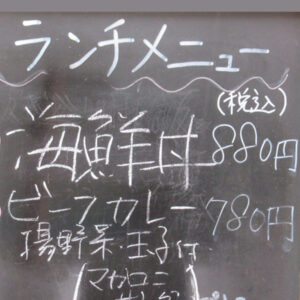 ランチメニュー
(税込)
海鮮丼 880円
ビーフカレー 780円
揚野菜・玉子付
マカロニ